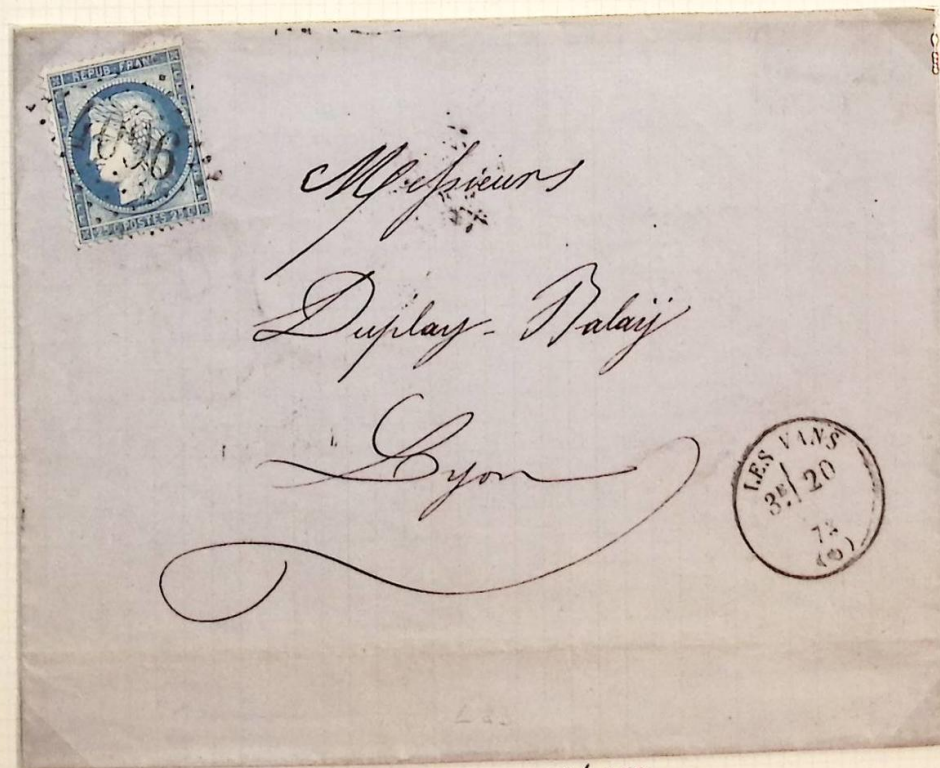 REPUB FRANC
4096
25 C POSTES 25 C
Messieurs
Duplay-Balaÿ
Lyon
LES VANS
3E/ 20
72
(6)